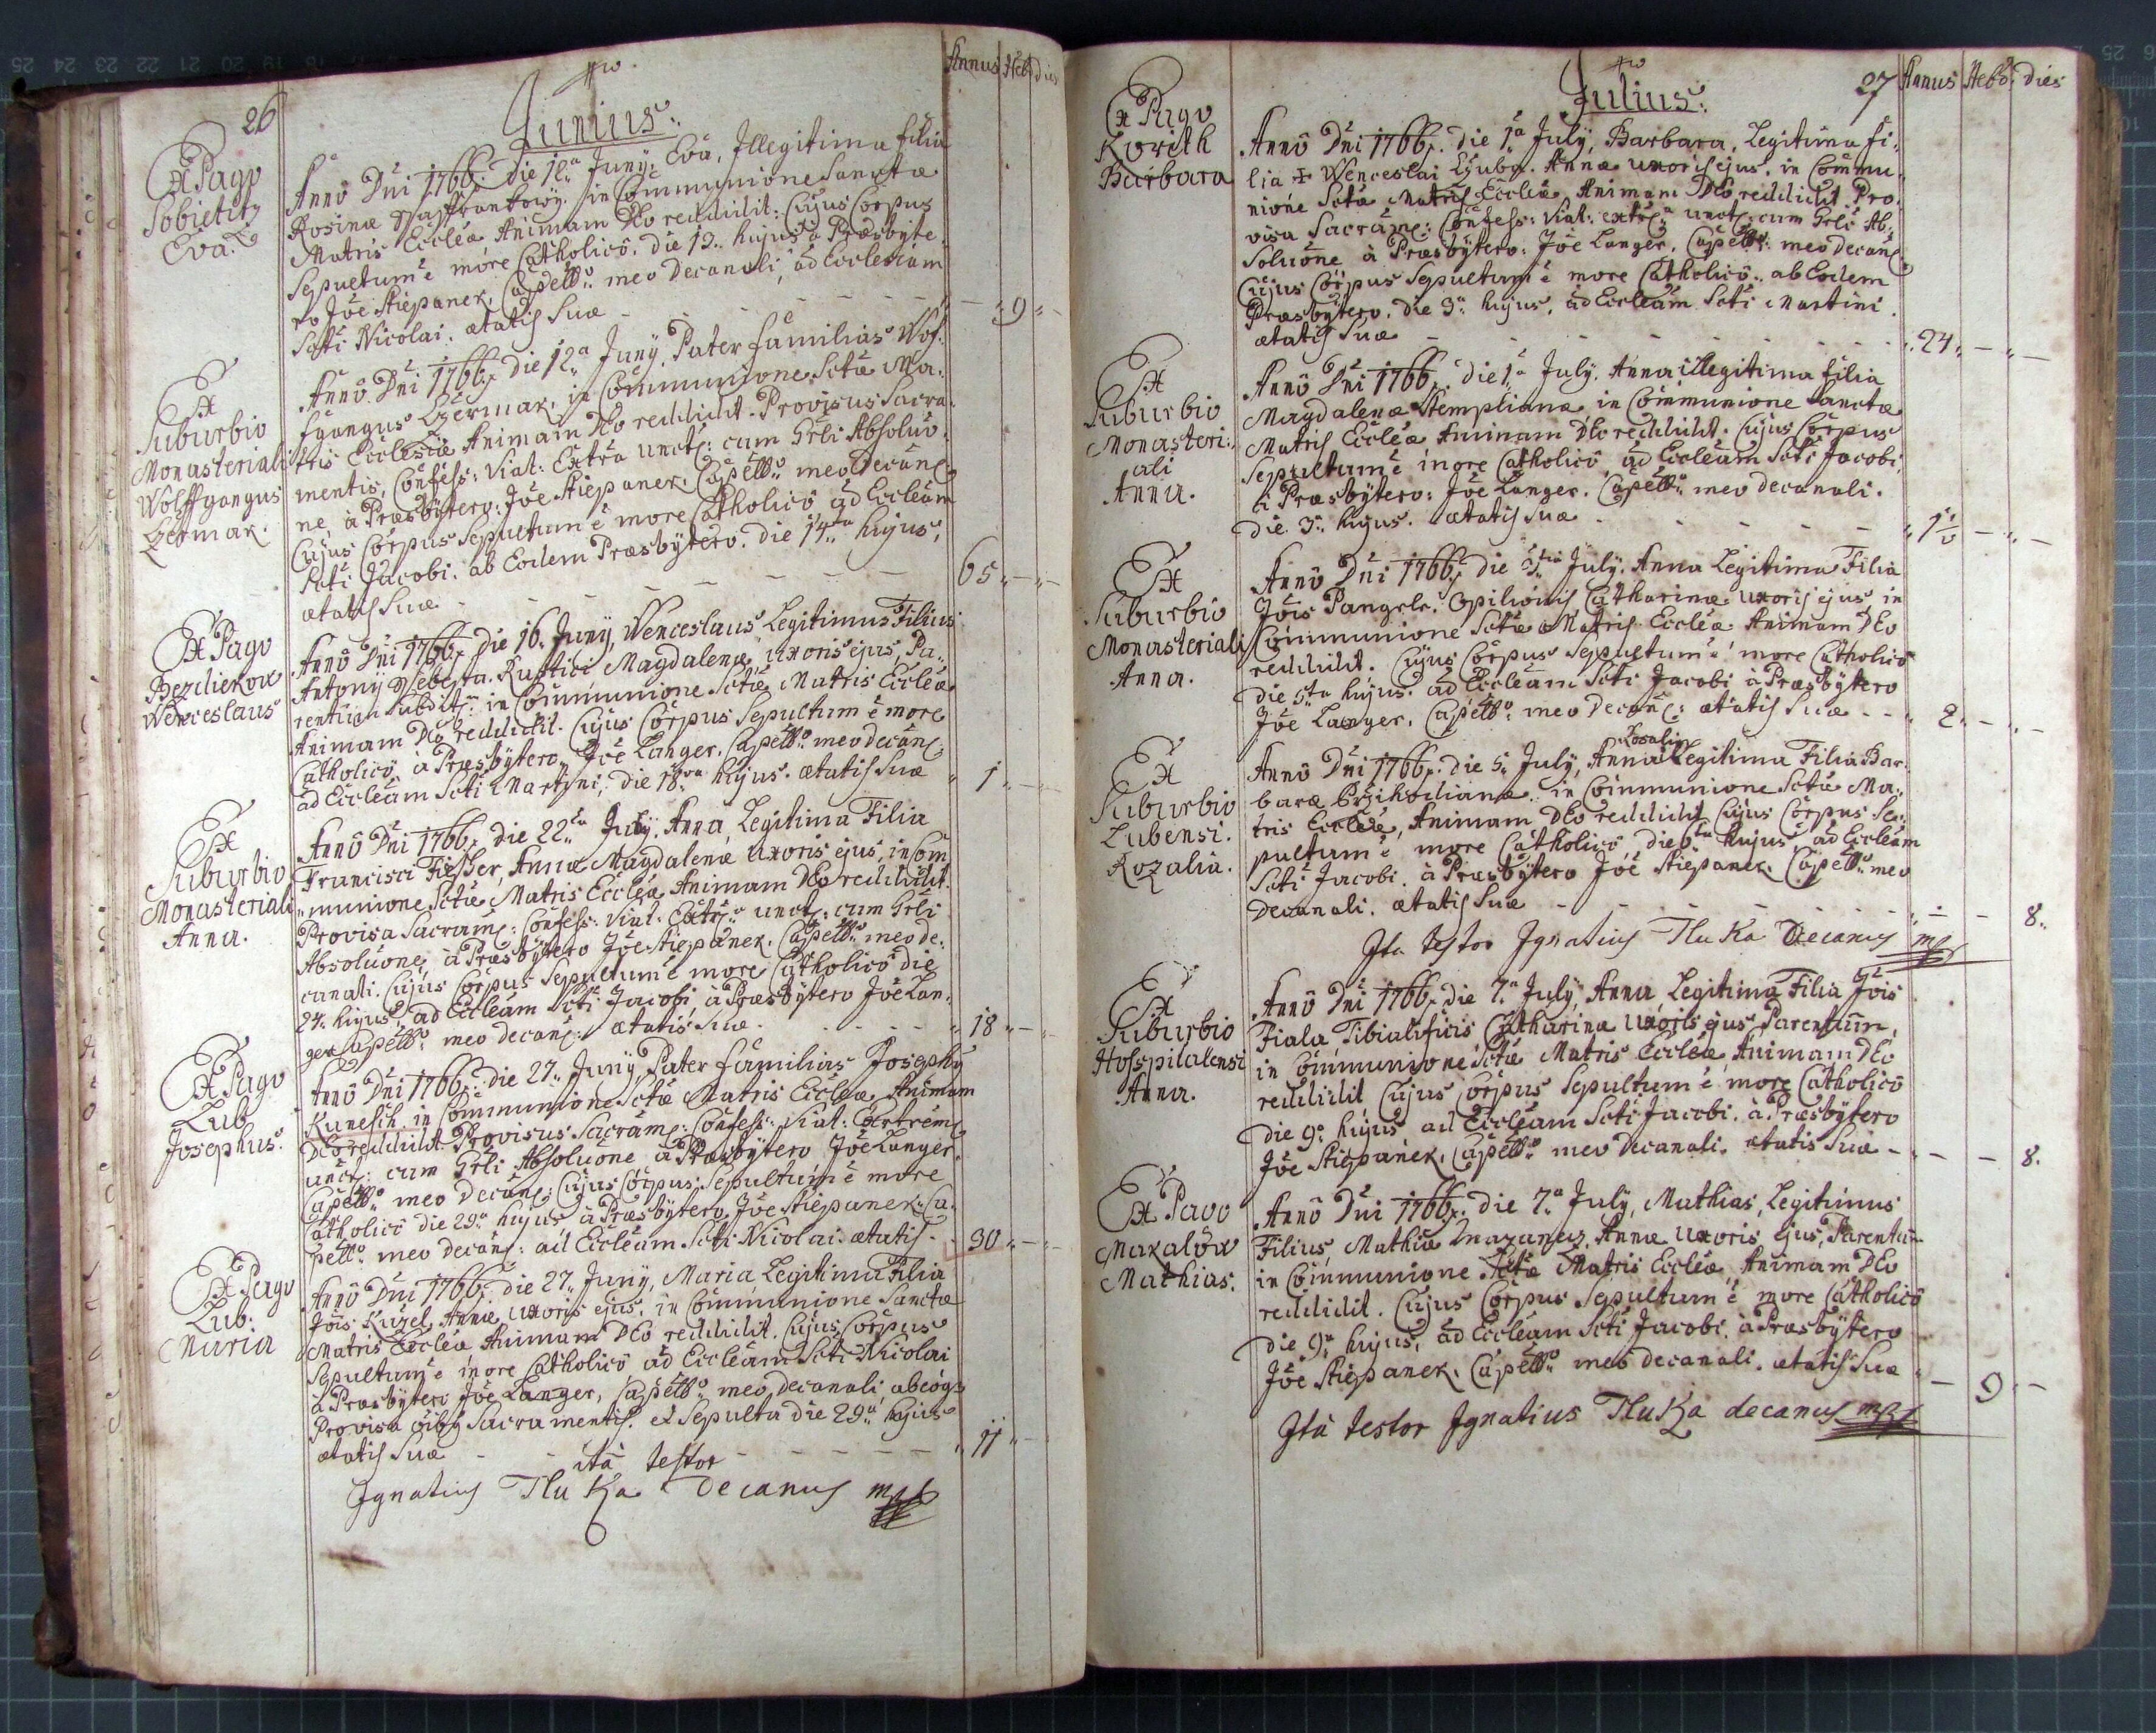 26
Junius:
Annus Heb: dies
Ex Pago
Sobietitz
Eva.
Annô Dni 1766. Die 12a Juny. Eva, Illegitima filia
Rosinæ in Communione Sanctæ
Matris Eccleæ Animam Deo reddidit: Cujus Corpus
Sepultum ê more Catholicô. die 13. hujus à Præsbyte
ro Jôe Stiepanek, Capellô meo Decanali, ad Ecclesiam
Scti Nicolai. ætatis Suæ - - - - 9 -
Ex
Suburbio
Monasteriali
Wolffgangus
Czermak.
Annô Dni 1766. die 12a Juny. Pater familias Wof:
fgangus Czermak, in Communione Sctæ Ma:
tris Ecclesiæ Animam Deo reddidit. Provisus Sacra:
mentis, Confess: Viat: Extra unct: cum Grli Absoluo:
ne à Præsbytero: Jôe Stiepanek. Capellô meo Decanl:
Cujus Corpus Sepultum ê more Catholicô ad Eccleam
Scti Jacobi. ab Eodem Præsbytero. die 14ta hujus,
ætatis Suæ - - - - 65 - -
Ex Pago
Bezdiekow
Wenceslaus
Annô Dni 1766. die 16. Juny, Wenceslaus Legitimus Filius
Antony Ssebesta. Rustici Magdalenæ uxoris ejus, Pa:
rentum Subdit: in Communione Sctæ Matris Eccleæ
Animam Deo reddidit. Cujus Corpus Sepultum ê more
Catholicô à Præsbytero Jôe Langer. Capellô meo decanl:
ad Eccleam Scti Martini, die 18va hujus. ætatis Suæ 1 - -
Ex
Suburbio
Monasteriali
Anna.
Annô Dni 1766. die 22da July. Anna, Legitima Filia
Francisci Fiesser, Annæ Magdalenæ uxoris ejus, in Com
munione Sctæ Matris Eccleæ Animam Deo reddidit.
Provisa Sacram: Confess: Viat: Extr: unct: cum Grli
Absoluone, à Præsbytero Jôe Stiepanek. Capellô meo de:
canali. Cujus Corpus Sepultum ê more Catholicô die
24. hujus, ad Eccleam Scti Jacobi, à Præsbytero Jôe Lan:
ger Capellô meo decanl: ætatis Suæ. - - - 18 - -
Ex Pago
Lub
Josephus.
Annô Dni 1766. die 27. Juny Pater familias Josephy
Kunesch. in Communione Sctæ Matris Eccleæ Animam
Deo reddidit. Provisus Sacram: Confess: Viat: Extrem:
unct: cum Grli Absoluone à Præsbytero Jôe Langer.
Capellô meo Decanl: Cujus Corpus Sepultum ê more
Catholicô die 29a hujus à Præsbytero Jôe Stiepanek. Ca:
pellô meo decanl: ad Eccleam Scti Nicolai. ætatis - 30 - -
Ex Pago
Lub:
Maria
Annô Dni 1766. die 27. Juny, Maria Legitima Filia
Jôis Kuzel Annæ uxoris ejus, in Communione Sanctæ
Matris Eccleæ Animam Deo reddidit. Cujus Corpus
Sepultum ê more Catholicô ad Eccleam Scti Nicolai
à Præsbytero Jôe Langer, Capellô meo, Decanali,
Provisa Sacramentis. et Sepulta die 29a hujus
ætatis Suæ - - - - 11 -
ita testor
Ignatius Tluka Decanus mp
27
Julius:
Annus Hebd: dies
Ex Pago
Korith
Barbara
Annô Dni 1766. die 1a July, Barbara, Legitima fi:
lia Wenceslai Annæ uxoris ejus, in Commu:
nione Sctæ Matris Eccleæ, Animam Deo reddidit. Pro:
visa Sacram: Confess: Viat: extr: unct: cum Grli Ab:
Soluone à Præsbytero: Jôe Langer, Capellô meo decanl:
Cujus Corpus Sepultum ê more Catholicô. ab Eodem
Præsbytero, die 3a hujus, ad Eccleam Scti Martini.
ætatis Suæ - - - - 24 - -
Ex
Suburbio
Monasteri:
ali
Anna.
Annô Dni 1766. die 1a July. Anna illegitima filia
Magdalenæ Stemplianæ in Communione Sanctæ
Matris Eccleæ Animam Deo reddidit. Cujus Corpus
Sepultum ê more Catholicô, ad Eccleam Scti Jacobi,
à Præsbytero: Jôe Langer. Capellô meo decanali.
die 3. hujus. ætatis Suæ - - - -
Ex
Suburbio
Monasteriali
Anna.
Annô Dni 1766. die 3tia July. Anna Legitima Filia
Jôis Opilionis Catharinæ uxoris ejus in
Communione Sctæ Matris Eccleæ Animam Deo
reddidit. Cujus Corpus Sepultum ê more Catholicô
die 5ta hujus. ad Eccleam Scti Jacobi à Præsbytero
Jôe Langer, Capellô meo Decanl: ætatis Suæ - - 2 - -
Ex
Suburbio
Lubensi.
Rozalia.
Annô Dni 1766. die 5. July, Anna Rosalia Legitima Filia Bar:
baræ Przihodianæ. in Communione Sctæ Ma:
tris Eccleæ, Animam Deo reddidit Cujus Corpus Se:
pultum ê more Catholicô, die 6ta hujus ad Eccleam
Scti Jacobi. à Præsbytero Jôe Stiepanek. Capellô meo
Decanali. ætatis Suæ - - - - 8.
Ita testor Ignatius Tluka Decanus mp
Ex
Suburbio
Hospitalensi
Anna.
Annô Dni 1766. die 7a July, Anna Legitima Filia Jôis
Fiala Tibialificis Catharinæ uxoris ejus Parentum,
in Communione Sctæ Matris Eccleæ Animam Deo
reddidit Cujus Corpus Sepultum ê more Catholicô
die 9a hujus ad Eccleam Scti Jacobi. à Præsbytero
Jôe Stiepanek, Capellô meo Decanali. ætatis Suæ - - - 8.
Ex Pago
Makalow
Mathias.
Annô Dni 1766. die 7a July, Mathias, Legitimus
Filius Mathiæ Annæ uxoris ejus, Parentum
in Communione Sctæ Matris Eccleæ, Animam Deo
reddidit. Cujus Corpus Sepultum ê more Catholicô
die 9a hujus, ad Eccleam Scti Jacobi. à Præsbytero
Jôe Stiepanek. Capellô meo decanali. ætatis Suæ - 9 -
Ita testor Ignatius Tluka decanus mp